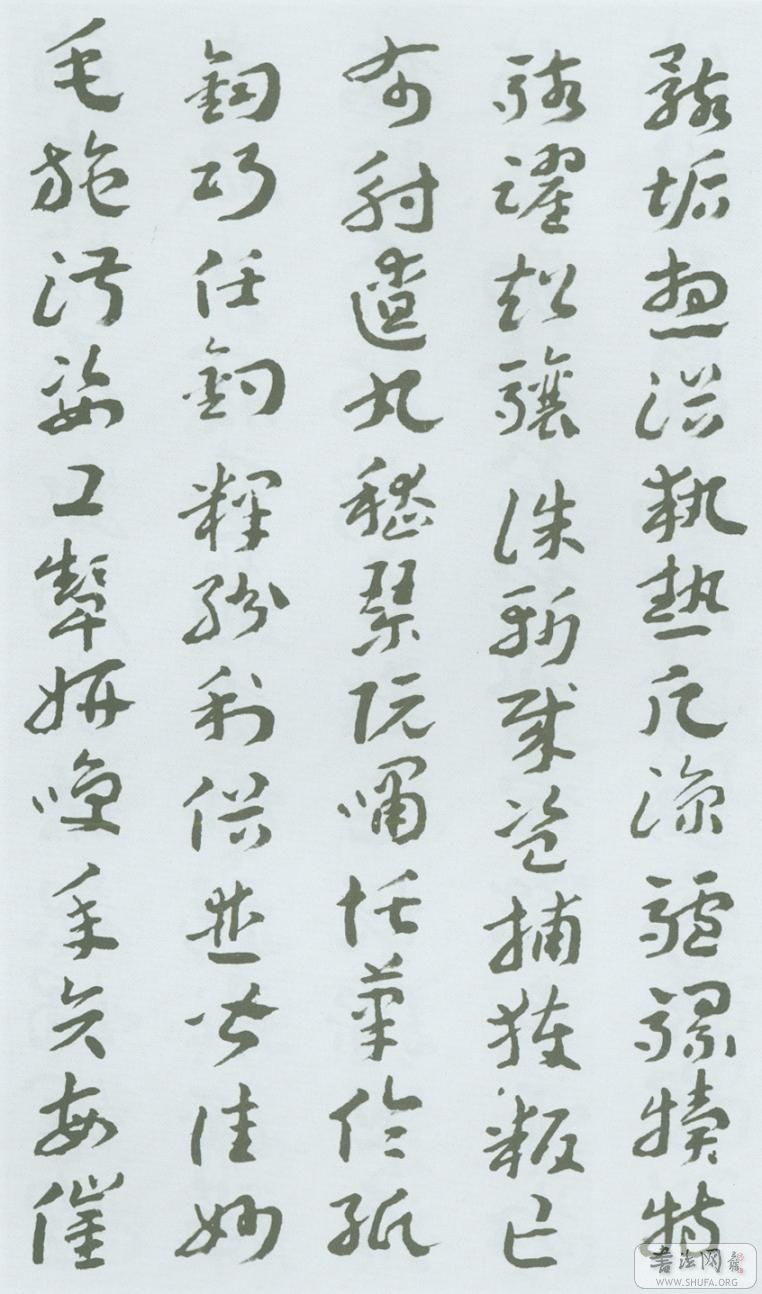 骸垢想浴執熱願涼驢騾犢特
駭躍超驤誅斬賊盜捕獲叛亡
布射遼丸嵇琴阮嘯恬筆倫紙
鈞巧任釣釋紛利俗並皆佳妙
毛施淑姿工顰妍咲年矢每催
書法网
WWW.SHUFA.ORG